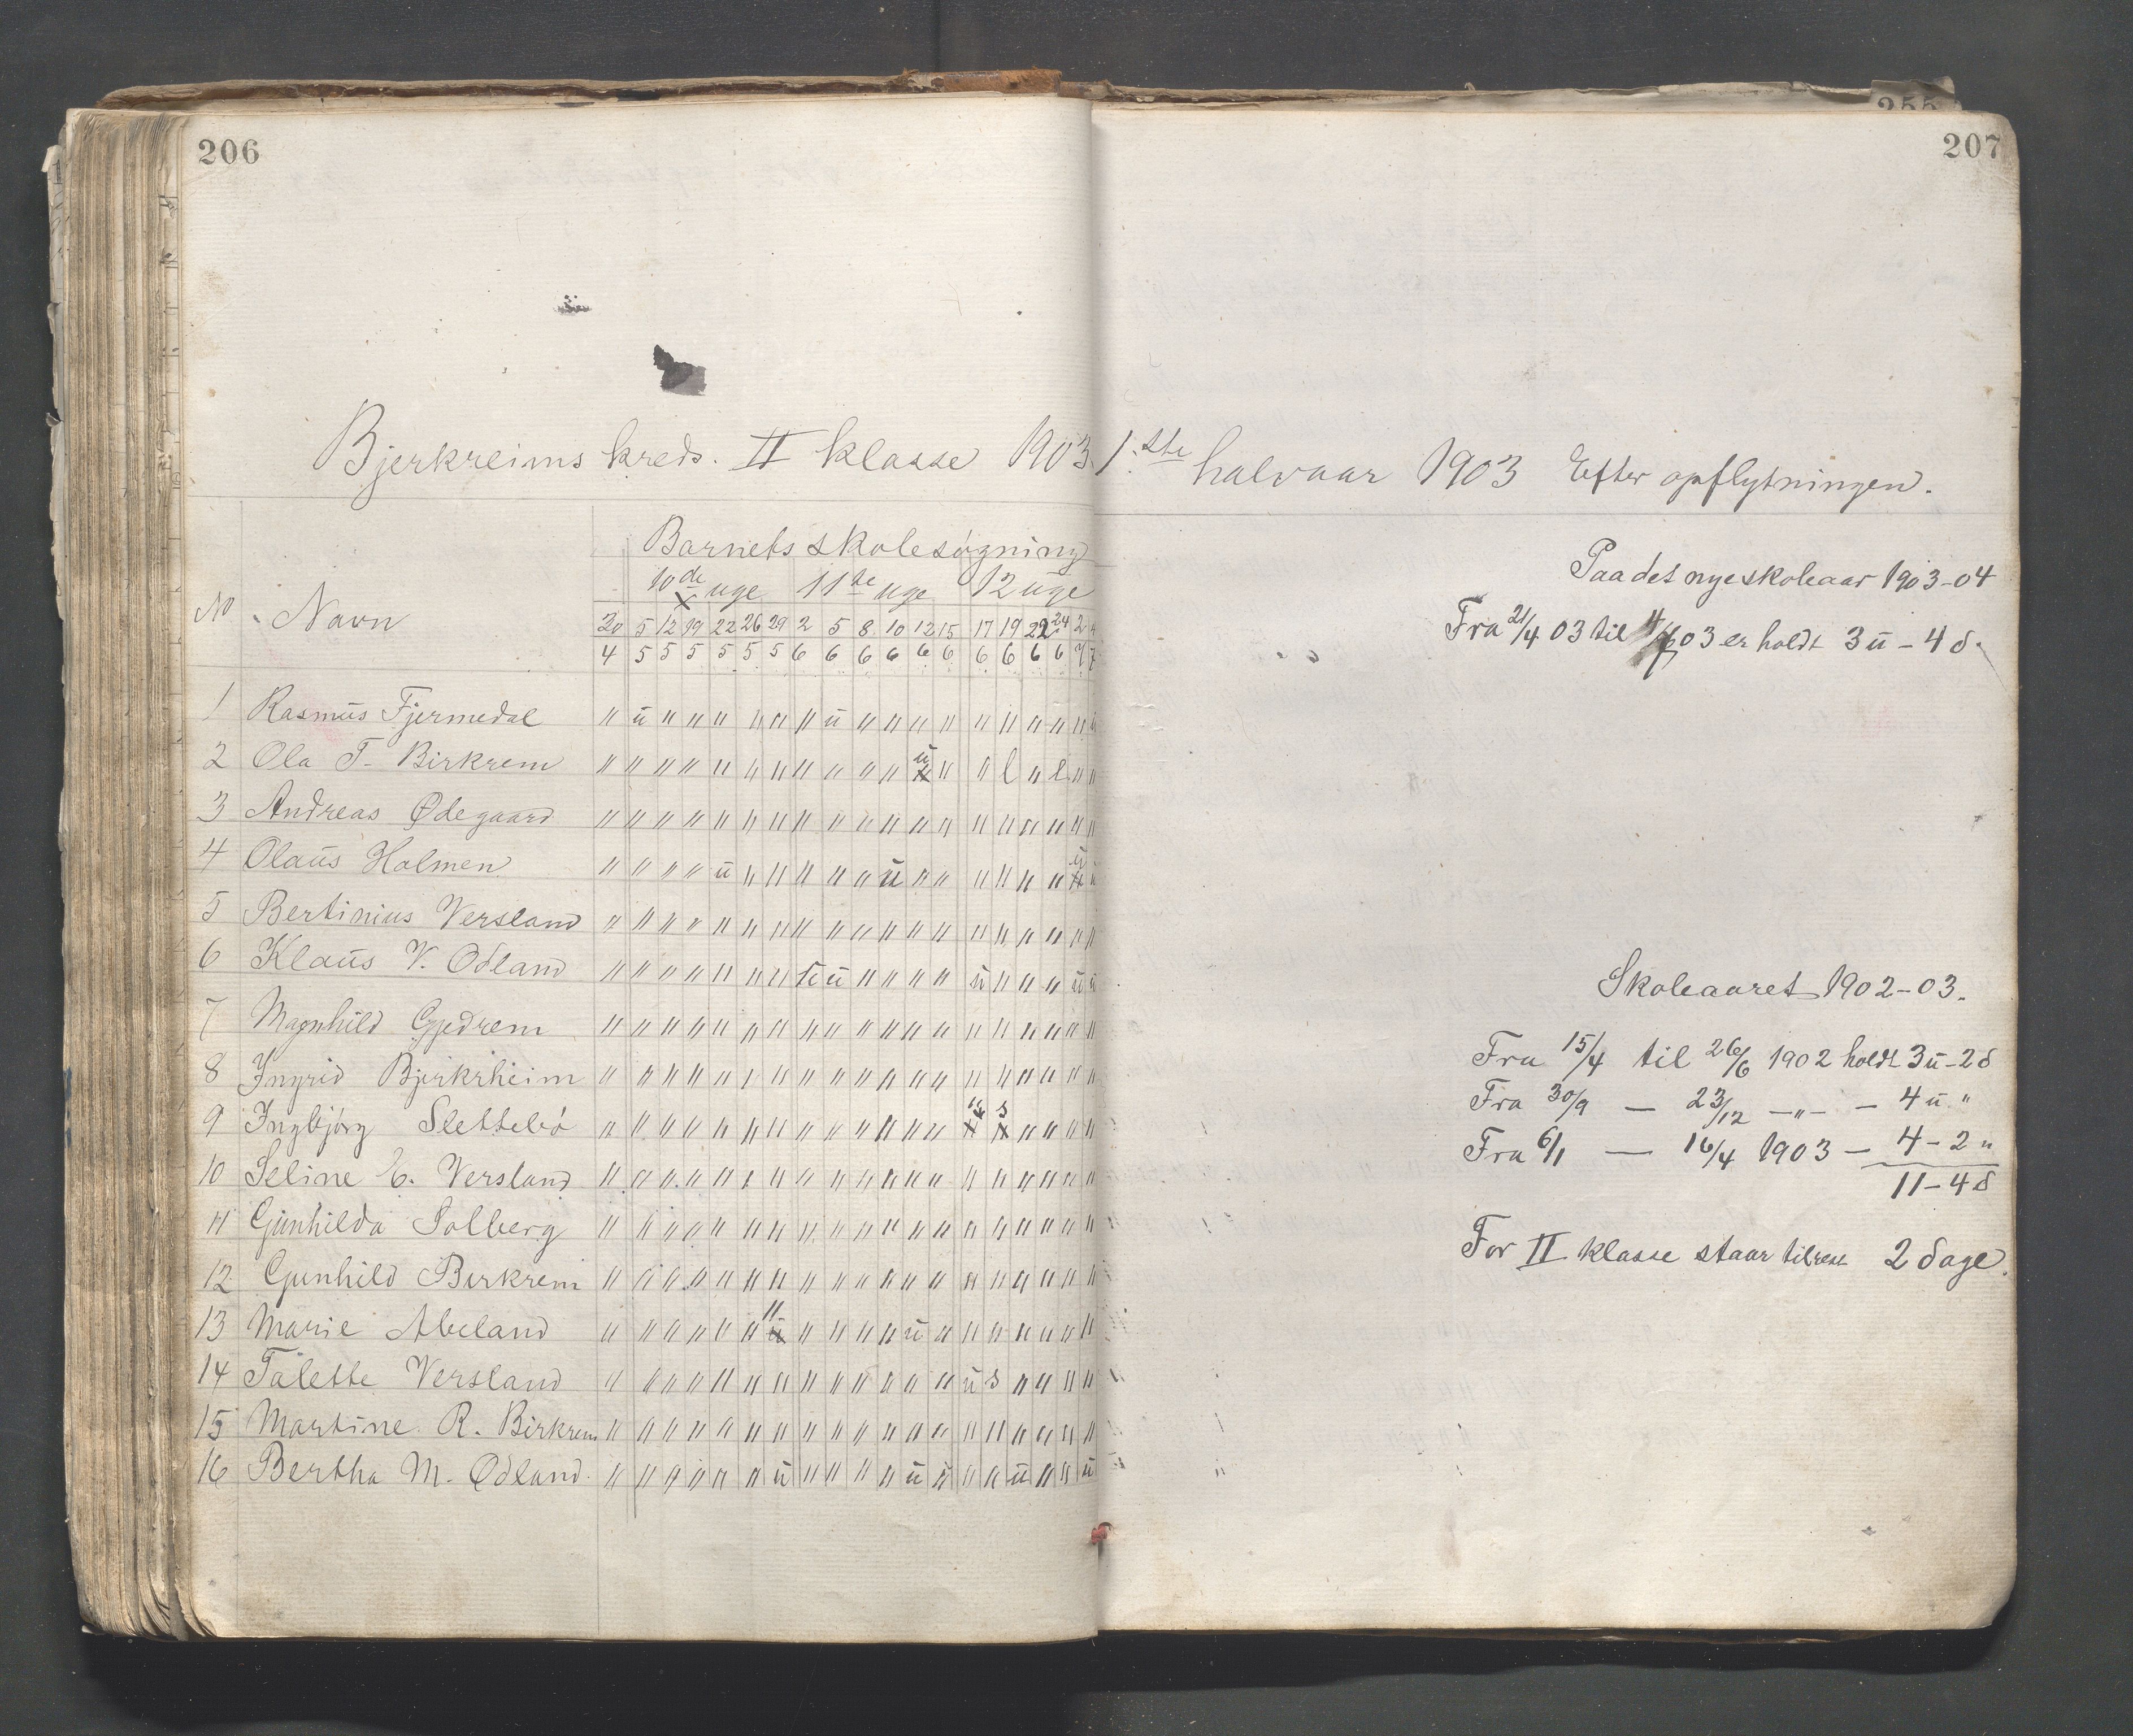 206
Bjerkreims kreds. II klasse 1903.
Barnets skolesøgning
10de uge 11te uge 12 uge
No. Navn
20 5 12 19 22 26 29 2 5 8 10 12 15 17 19 22 24 2
4 5 5 5 5 5 5 6 6 6 6 6 6 6 6 6 6 7 7
1 Rasmus Fjermedal
2 Ola T. Birkrem
3 Andreas Ødegaard
4 Olaus Holmen
5 Bertinius Versland
6 Klaus V. Odland
7 Magnhild Gjedrem
8 Ingrid Bjerkrheim
9 Ingbjørg Slettebø
10 Seline E. Versland
11 Gunhilda Solberg
12 Gunhild Birkrem
13 Marie Abeland
14 Talette Versland
15 Martine R. Birkrem
16 Bertha M. Ødland
255
207
1.ste halvaar 1903 Efter opflytningen.
Paa det nye skoleaar 1903-04
Fra 21/4 03 til 4/7 03 er holdt 3 u - 4 d.
Skoleaaret 1902-03.
Fra 15/4 til 26/6 1902 holdt 3 u - 2 d
Fra 30/9 — 23/12 —"— — 4 u "
Fra 6/1 — 16/4 1903 — 4 - 2 "
11 - 4 d
For II klasse staar til rest 2 dage.